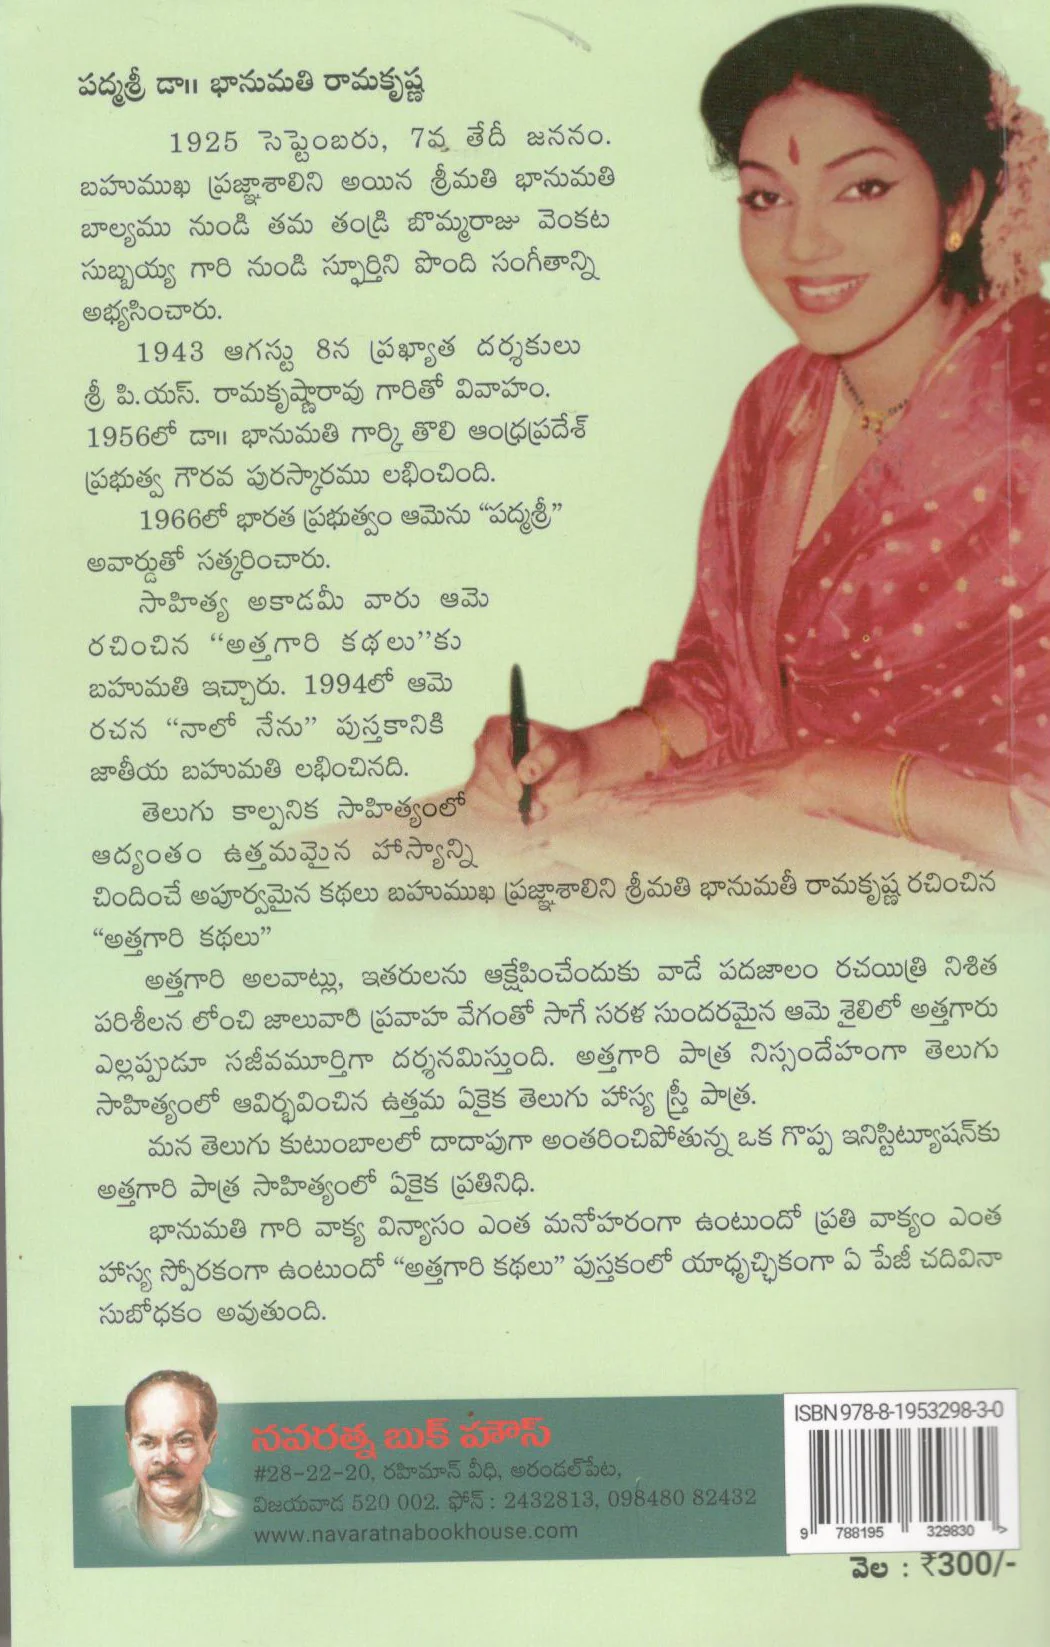 పద్మశ్రీ డా॥ భానుమతి రామకృష్ణ
1925 సెప్టెంబరు, 7వ తేదీ జననం.
బహుముఖ ప్రజ్ఞాశాలిని అయిన శ్రీమతి భానుమతి
బాల్యము నుండి తమ తండ్రి బొమ్మరాజు వెంకట
సుబ్బయ్య గారి నుండి స్ఫూర్తిని పొంది సంగీతాన్ని
అభ్యసించారు.
1943 ఆగస్టు 8న ప్రఖ్యాత దర్శకులు
శ్రీ పి.యస్. రామకృష్ణారావు గారితో వివాహం.
1956లో డా॥ భానుమతి గార్కి తొలి ఆంధ్రప్రదేశ్
ప్రభుత్వ గౌరవ పురస్కారము లభించింది.
1966లో భారత ప్రభుత్వం ఆమెను “పద్మశ్రీ”
అవార్డుతో సత్కరించారు.
సాహిత్య అకాడమీ వారు ఆమె
రచించిన “అత్తగారి కథలు”కు
బహుమతి ఇచ్చారు. 1994లో ఆమె
రచన “నాలో నేను” పుస్తకానికి
జాతీయ బహుమతి లభించినది.
తెలుగు కాల్పనిక సాహిత్యంలో
ఆద్యంతం ఉత్తమమైన హాస్యాన్ని
చిందించే అపూర్వమైన కథలు బహుముఖ ప్రజ్ఞాశాలిని శ్రీమతి భానుమతీ రామకృష్ణ రచించిన
“అత్తగారి కథలు”
అత్తగారి అలవాట్లు, ఇతరులను ఆక్షేపించేందుకు వాడే పదజాలం రచయిత్రి నిశిత
పరిశీలన లోంచి జాలువారి ప్రవాహ వేగంతో సాగే సరళ సుందరమైన ఆమె శైలిలో అత్తగారు
ఎల్లప్పుడూ సజీవమూర్తిగా దర్శనమిస్తుంది. అత్తగారి పాత్ర నిస్సందేహంగా తెలుగు
సాహిత్యంలో ఆవిర్భవించిన ఉత్తమ ఏకైక తెలుగు హాస్య స్త్రీ పాత్ర.
మన తెలుగు కుటుంబాలలో దాదాపుగా అంతరించిపోతున్న ఒక గొప్ప ఇనిస్టిట్యూషన్‌కు
అత్తగారి పాత్ర సాహిత్యంలో ఏకైక ప్రతినిధి.
భానుమతి గారి వాక్య విన్యాసం ఎంత మనోహరంగా ఉంటుందో ప్రతి వాక్యం ఎంత
హాస్య స్పోరకంగా ఉంటుందో “అత్తగారి కథలు” పుస్తకంలో యాధృచ్ఛికంగా ఏ పేజీ చదివినా
సుబోధకం అవుతుంది.
నవరత్న బుక్ హౌస్
#28-22-20, రహిమాన్ వీధి, అరండల్‌పేట,
విజయవాడ 520 002. ఫోన్ : 2432813, 098480 82432
www.navaratnabookhouse.com
ISBN 978-8-1953298-3-0
9 788195 329830 >
వెల : ₹300/-